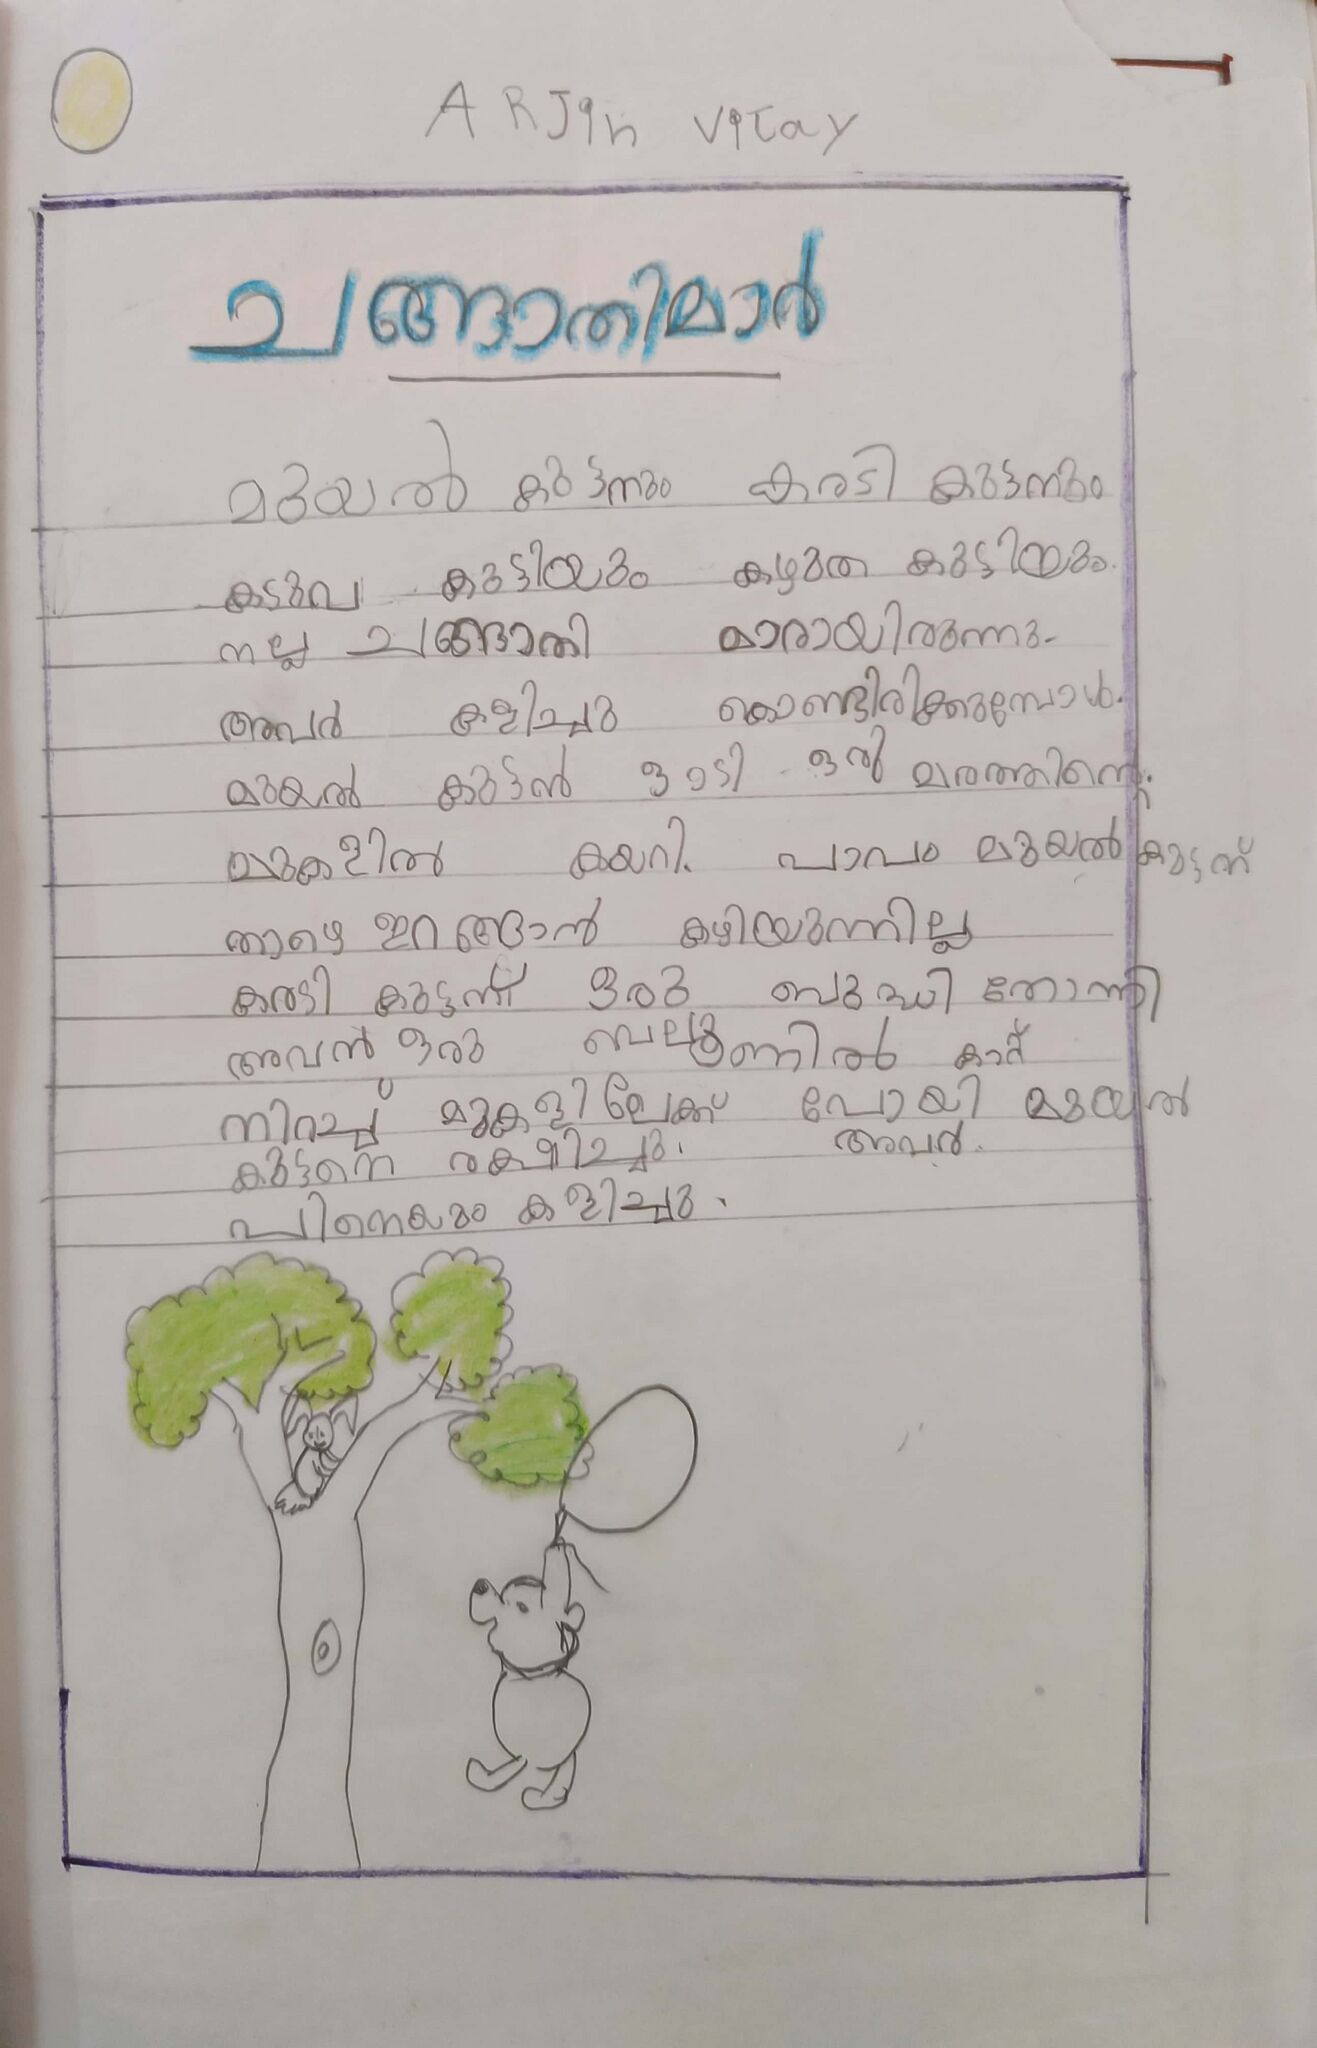 ARJin viJay
ചങ്ങാതിമാർ
മുയൽ കുട്ടനും കരടി കുട്ടനും
കടുവ കുട്ടിയും കഴുത കുട്ടിയും.
നല്ല ചങ്ങാതി മാരായിരുന്നു.
അവർ കളിച്ചു കൊണ്ടിരിക്കുമ്പോൾ.
മുയൽ കുട്ടൻ ഓടി ഒരു മരത്തിന്റെ
മുകളിൽ കയറി. പാവം മുയൽ കുട്ടന്
താഴെ ഇറങ്ങാൻ കഴിയുന്നില്ല
കരടി കുട്ടന് ഒരു ബുദ്ധി തോന്നി
അവൻ ഒരു ബലൂണിൽ കാറ്റ്
നിറച്ച് മുകളിലേക്ക് പോയി മുയൽ
കുട്ടനെ രക്ഷിച്ചു. അവർ.
പിന്നെയും കളിച്ചു.